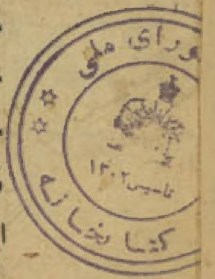 ورای ملی
تاسیس ۱۳۰۲
کتابخانه